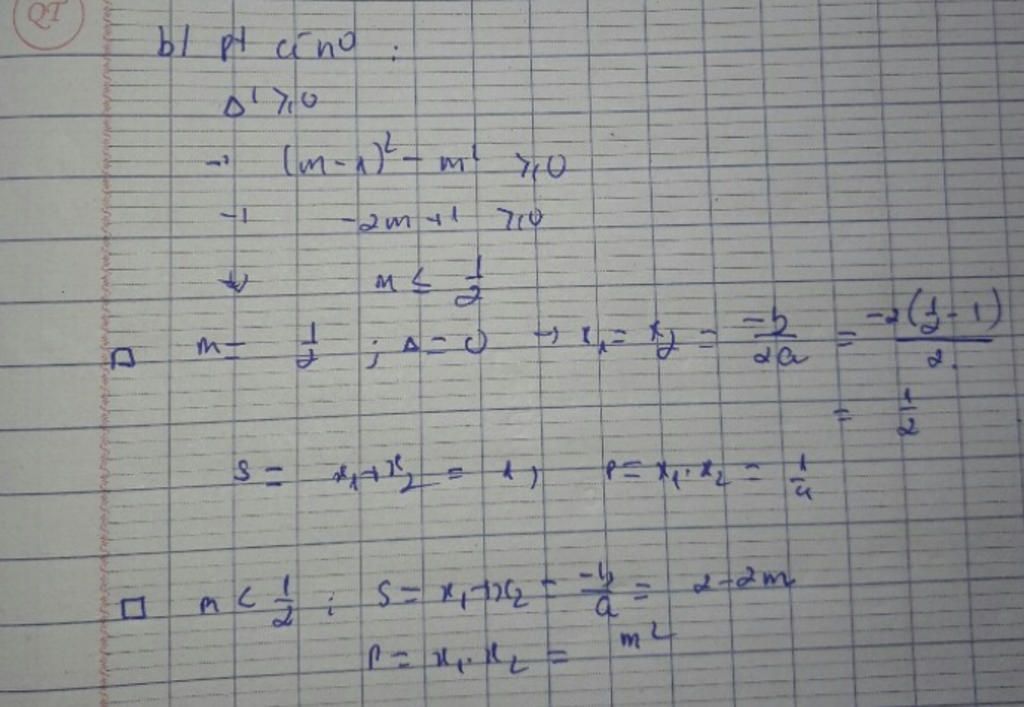 b/ pt có n0 :
Δ' ≥ 0
→ (m-1)² - m² ≥ 0
→ -2m+1 ≥ 0
↓ m ≤ 1/2
□ m = 1/2 ; Δ = 0 → x₁ = x₂ = -b/2a = -2(1/2 - 1)/2
= 1/2
S = x₁+x₂ = 1, P = x₁.x₂ = 1/4
□ m < 1/2 ; S = x₁+x₂ = -b/a = 2-2m
P = x₁.x₂ = m²